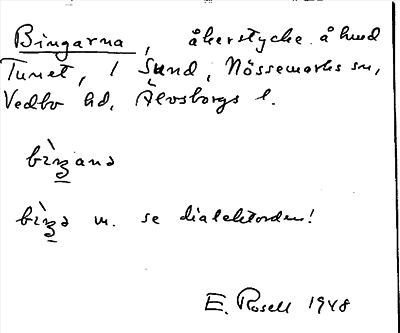 Bingarna, åkerstycke å hmd
Tunet, 1 Sund, Nössemarks sn,
Vedbo hd, Älvsborgs l.
bìŋana
bìŋə m. se dialektorden!
E. Rosell 1948